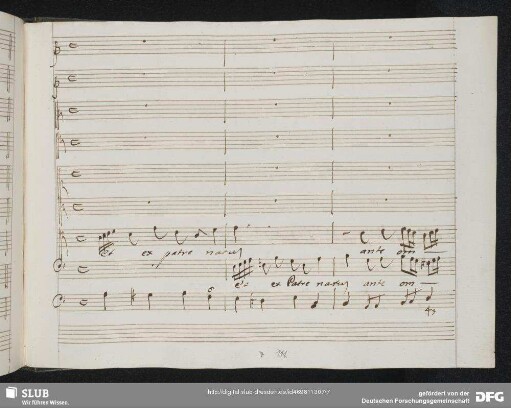 Et ex patre natum ante om
Et ex Patre natum ante om
SLUB
Wir führen Wissen.
http://digital.slub-dresden.de/
gefördert von der
Deutschen Forschungsgemeinschaft
DFG